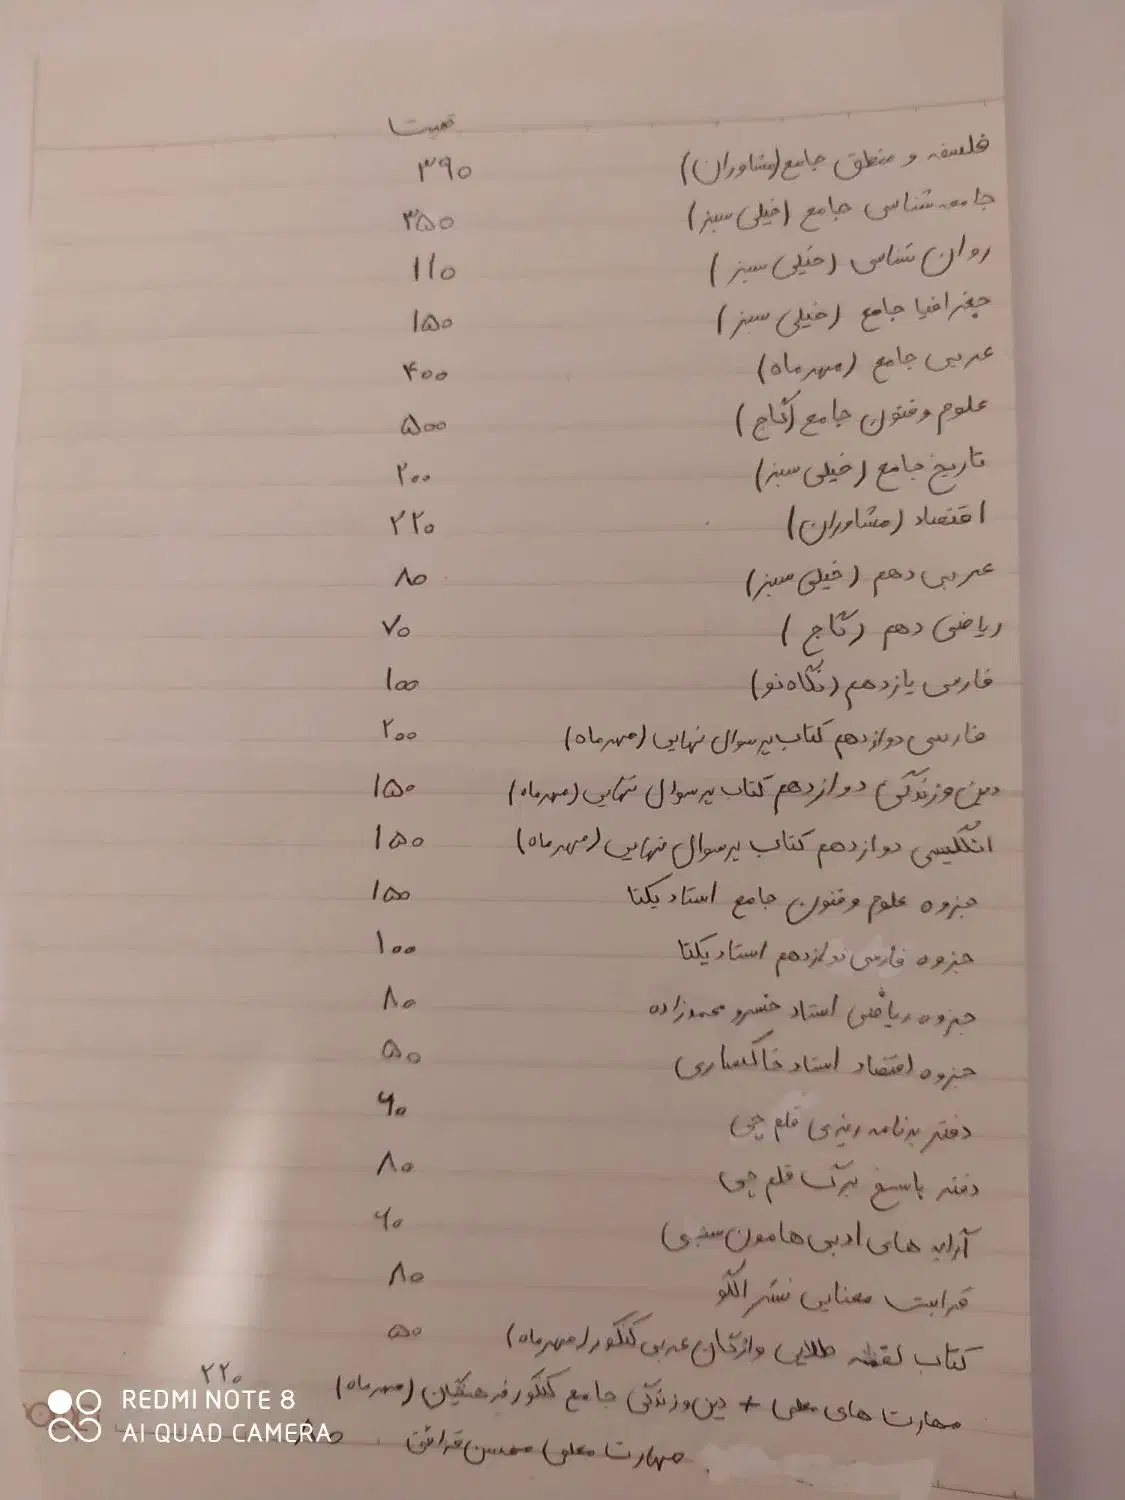 قیمت
فلسفه و منطق جامع (مشاوران) ۳۹۰
جامعه شناسی جامع (خیلی سبز) ۳۵۰
روان شناسی (خیلی سبز) ۱۱۰
جغرافیا جامع (خیلی سبز) ۱۵۰
عربی جامع (مهرماه) ۴۰۰
علوم و فنون جامع (گاج) ۵۰۰
تاریخ جامع (خیلی سبز) ۲۰۰
اقتصاد (مشاوران) ۲۲۰
عربی دهم (خیلی سبز) ۸۰
ریاضی دهم (گاج) ۷۰
فارسی یازدهم (نگاه نو) ۱۰۰
فارسی دوازدهم کتاب پرسوال نهایی (مهرماه) ۲۰۰
دین و زندگی دوازدهم کتاب پرسوال نهایی (مهرماه) ۱۵۰
انگلیسی دوازدهم کتاب پرسوال نهایی (مهرماه) ۱۵۰
جزوه علوم و فنون جامع استاد یکتا ۱۵۰
جزوه فارسی دوازدهم استاد یکتا ۱۰۰
جزوه ریاضی استاد خسرو محمدزاده ۸۰
جزوه اقتصاد استاد خاکساری ۵۰
دفتر برنامه ریزی قلم چی ۶۰
دفتر پاسخ برگ قلم چی ۸۰
آرایه های ادبی هامون سبطی ۶۰
قرابت معنایی نشر الگو ۸۰
کتاب لقمه طلایی واژگان عربی کنکور (مهرماه) ۵۰
مهارت های معلمی + دین و زندگی جامع کنکور فرهنگیان (مهرماه) ۲۲۰
مهارت معلمی محسن قرائتی
REDMI NOTE 8
AI QUAD CAMERA